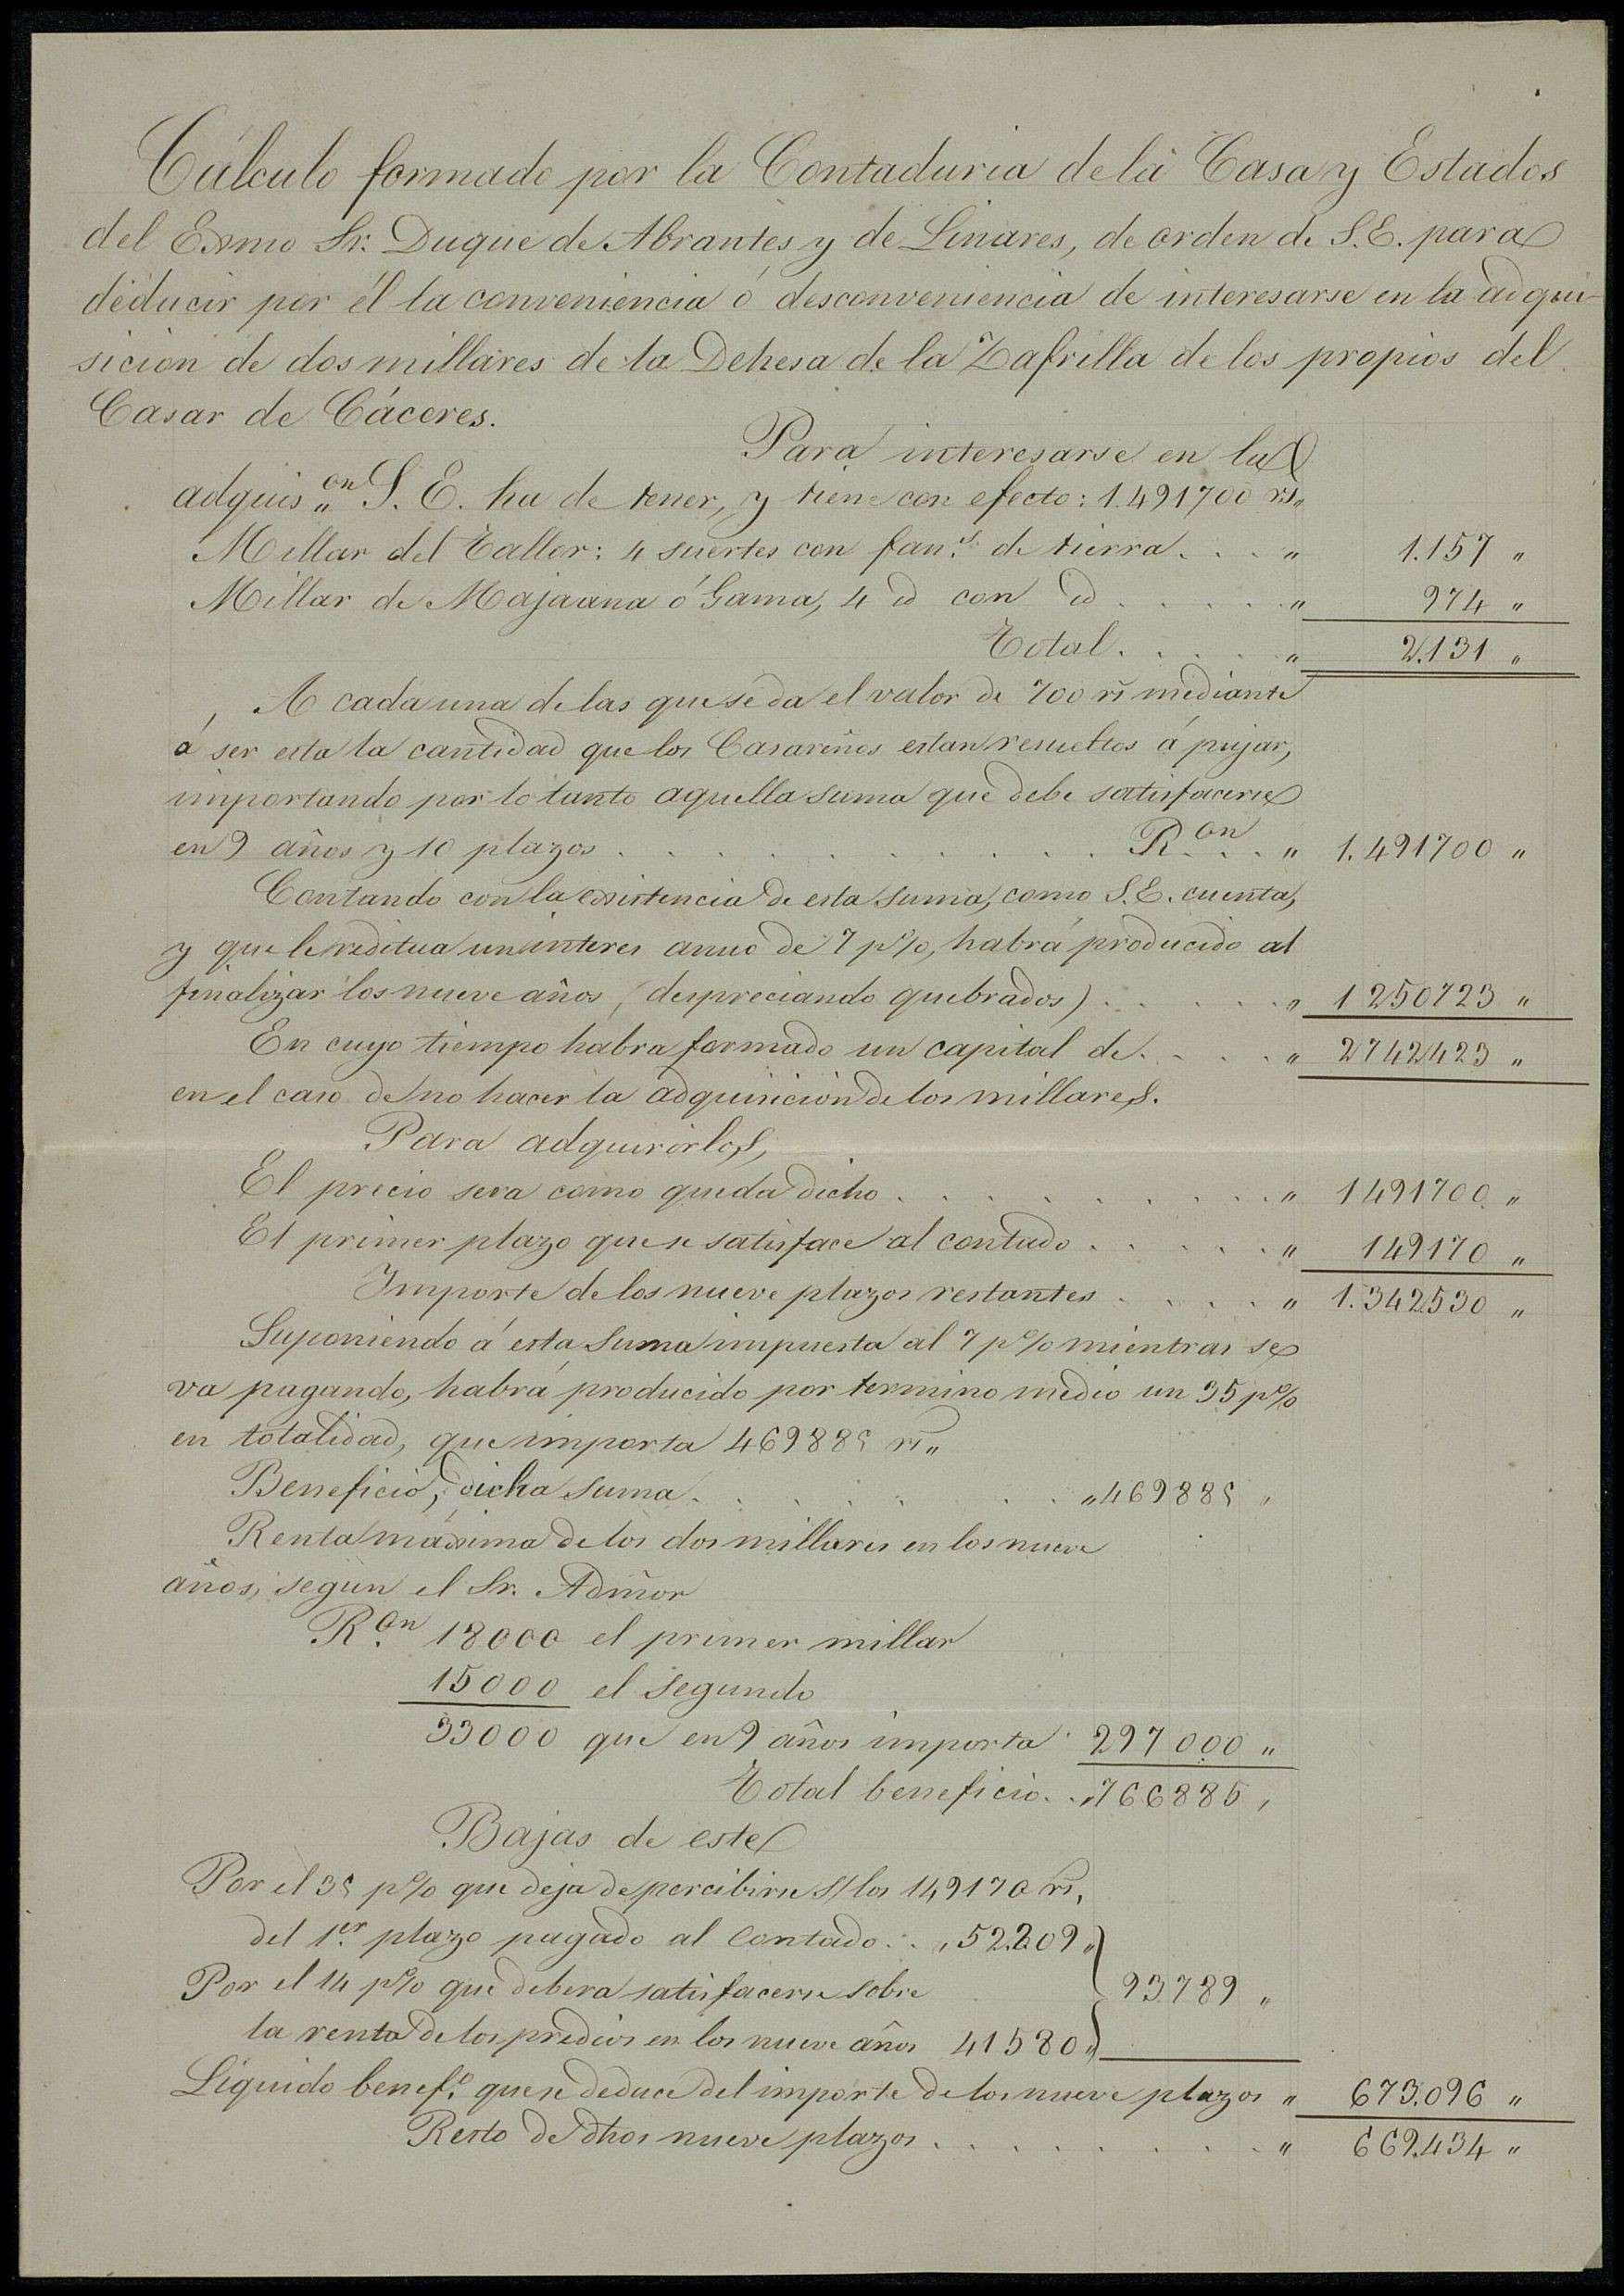 Cálculo formado por la Contaduria de la Casa y Estados
del Exmo Sr. Duque de Abrantes y de Linares, de orden de S.E. para
deducir por él la conveniencia ó desconveniencia de interesarse en la adqui-
sicion de dos millares de la Dehesa de la Zafrilla de los propios del
Casar de Cáceres.
Para interesarse en la
adquis.on S. E. ha de tener, y tiene con efecto: 1.491700 rs"
Millar del Tallor: 4 suertes con fan.s de tierra . . . " 1.157 "
Millar de Majaana ó Gama, 4 id con id . . . . . " 974 "
Total . . . . . " 2.131 "
A cada una de las que se da el valor de 700 rs mediante
á ser esta la cantidad que los Casareños estan resueltos á pujar,
importando por lo tanto aquella suma que debe satisfacerse
en 9 años y 10 plazos . . . . . . . . . . . R.on . . . " 1.491700 "
Contando con la existencia de esta suma, como S.E. cuenta,
y que le reditua un interes anuo de 7 p%, habrá producido al
finalizar los nueve años (despreciando quebrados) . . . . . " 1250723 "
En cuyo tiempo habra formado un capital de . . . . " 2742423 "
en el caso de no hacer la adquisicion de los millares.
Para adquirirlos,
El precio sera como queda dicho . . . . . . . . . . " 1491700 "
El primer plazo que se satisface al contado . . . . . " 149170 "
Importe de los nueve plazos restantes . . . . . " 1.342530 "
Suponiendo á esta suma impuesta al 7 p% mientras se
va pagando, habrá producido por termino medio un 35 p%
en totalidad, que importa 469885 rs"
Beneficio, dicha suma . . . . . . . " 469885 "
Renta máxima de los dos millares en los nueve
años, segun el Sr. Admor
R.on 18000 el primer millar
15000 el segundo
33000 que en 9 años importa 297000 "
Total beneficio . . " 766885 "
Bajas de este
Por el 35 p% que deja de percibirse s/ los 149170 rs,
del 1.er plazo pagado al contado . . " 52.209 "
Por el 14 p% que debera satisfacerse sobre 93789 "
la renta de los predios en los nueve años 41580 "
Liquido benef.o que se deduce del importe de los nueve plazos " 673.096 "
Resto de dhos nueve plazos . . . . . . . . . . " 669.434 "